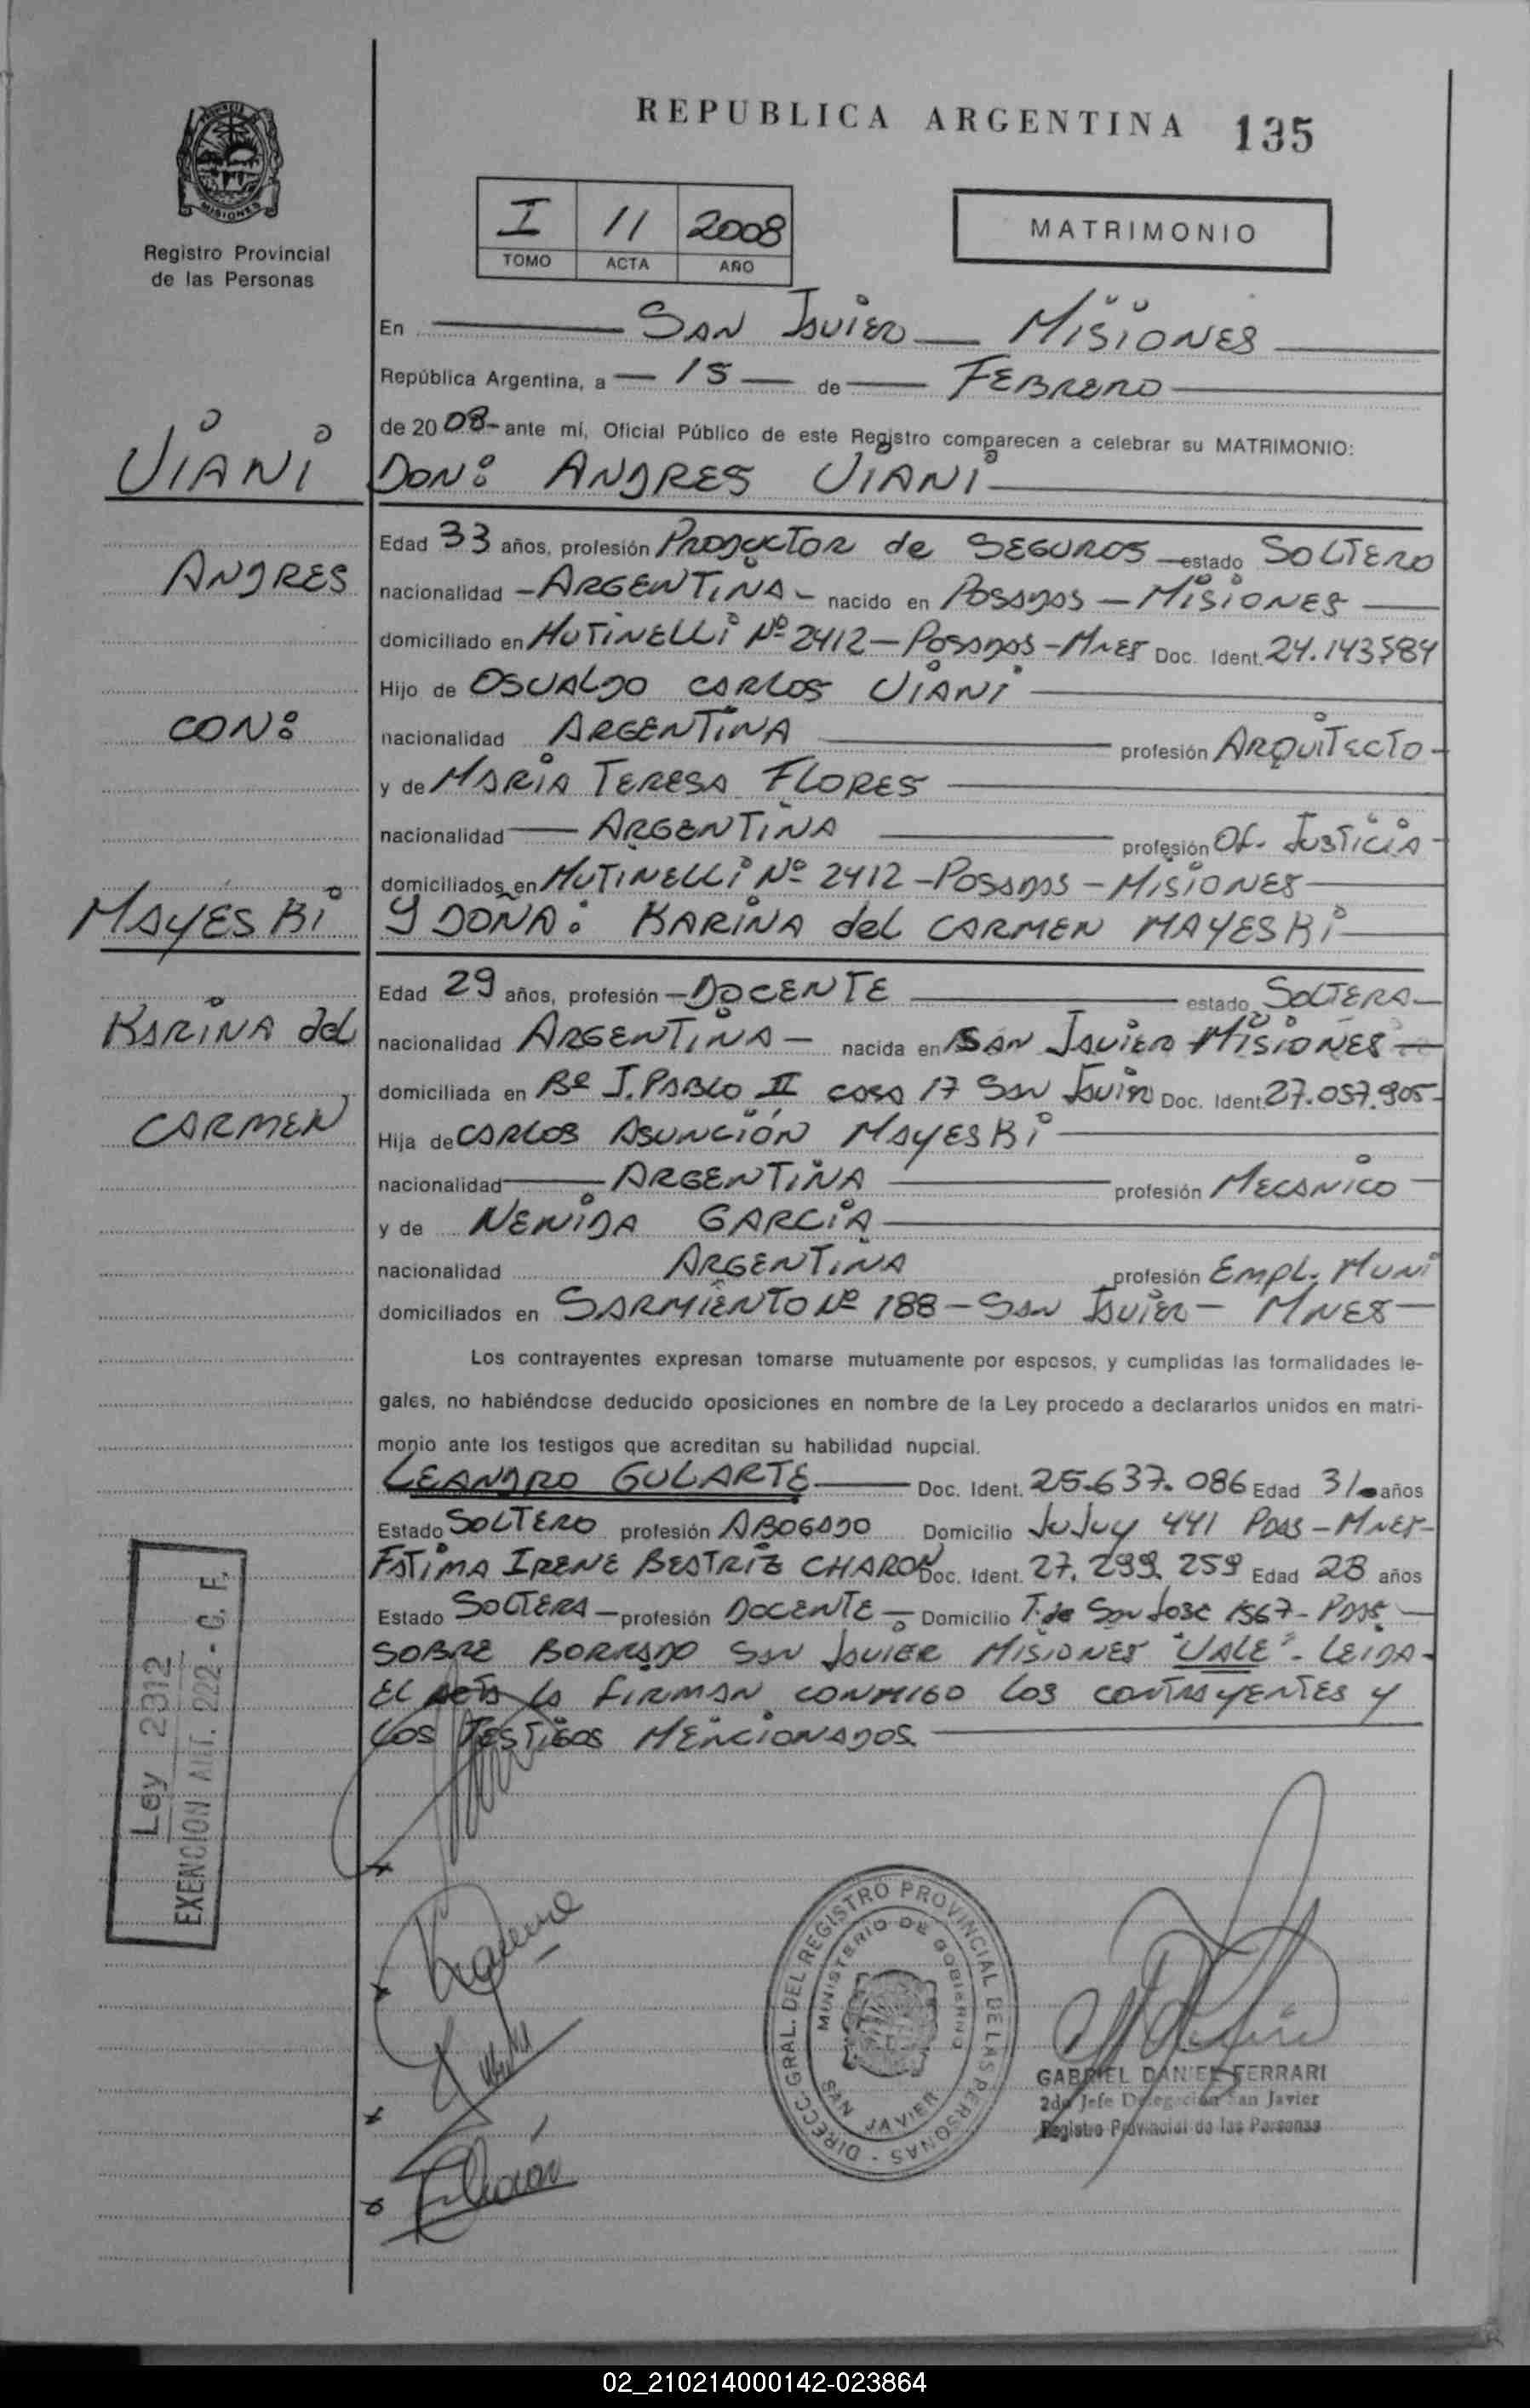 REPUBLICA ARGENTINA 135
MISIONES
Registro Provincial
de las Personas
I 11 2008
TOMO ACTA AÑO
MATRIMONIO
En SAN JAVIER MISIONES
República Argentina, a 15 de FEBRERO
de 2008 ante mí, Oficial Público de este Registro comparecen a celebrar su MATRIMONIO:
VIANI
ANDRES
CON:
MAYESKI
KARINA del
CARMEN
DON: ANDRES VIANI
Edad 33 años, profesión PRODUCTOR de SEGUROS estado SOLTERO
nacionalidad ARGENTINA nacido en POSADAS - MISIONES
domiciliado en MUTINELLI Nº 2412 - POSADAS - MNES Doc. Ident. 24.143584
Hijo de OSVALDO CARLOS VIANI
nacionalidad ARGENTINA profesión ARQUITECTO
y de MARIA TERESA FLORES
nacionalidad ARGENTINA profesión OF. JUSTICIA
domiciliados en MUTINELLI Nº 2412 - POSADAS - MISIONES
Y DOÑA: KARINA del CARMEN MAYESKI
Edad 29 años, profesión DOCENTE estado SOLTERA
nacionalidad ARGENTINA nacida en SAN JAVIER MISIONES
domiciliada en Bº J. PABLO II casa 17 San Javier Doc. Ident. 27.057.905
Hija de CARLOS ASUNCIÓN MAYESKI
nacionalidad ARGENTINA profesión MECANICO
y de NENIDA GARCIA
nacionalidad ARGENTINA profesión EMPL. MUNI
domiciliados en SARMIENTO Nº 188 - San Javier - MNES
Los contrayentes expresan tomarse mutuamente por esposos, y cumplidas las formalidades le-
gales, no habiéndose deducido oposiciones en nombre de la Ley procedo a declararlos unidos en matri-
monio ante los testigos que acreditan su habilidad nupcial.
LEANDRO GULARTE Doc. Ident. 25.637.086 Edad 31 años
Estado SOLTERO profesión ABOGADO Domicilio JUJUY 441 PDAS - MNES
FATIMA IRENE BEATRIZ CHARON Doc. Ident. 27.299.259 Edad 28 años
Estado SOLTERA profesión DOCENTE Domicilio T. de San José 1567 - PDAS
SOBRE BORRADO San Javier MISIONES "VALE". LEIDA
EL ACTA LA FIRMAN CONMIGO LOS CONTRAYENTES Y
LOS TESTIGOS MENCIONADOS
Ley 2312
EXENCION ART. 222 - C. F.
DIRECC. GRAL. DEL REGISTRO PROVINCIAL DE LAS PERSONAS
MINISTERIO DE GOBIERNO
SAN JAVIER
GABRIEL DANIEL FERRARI
2do Jefe Delegación San Javier
Registro Provincial de las Personas
02_210214000142-023864